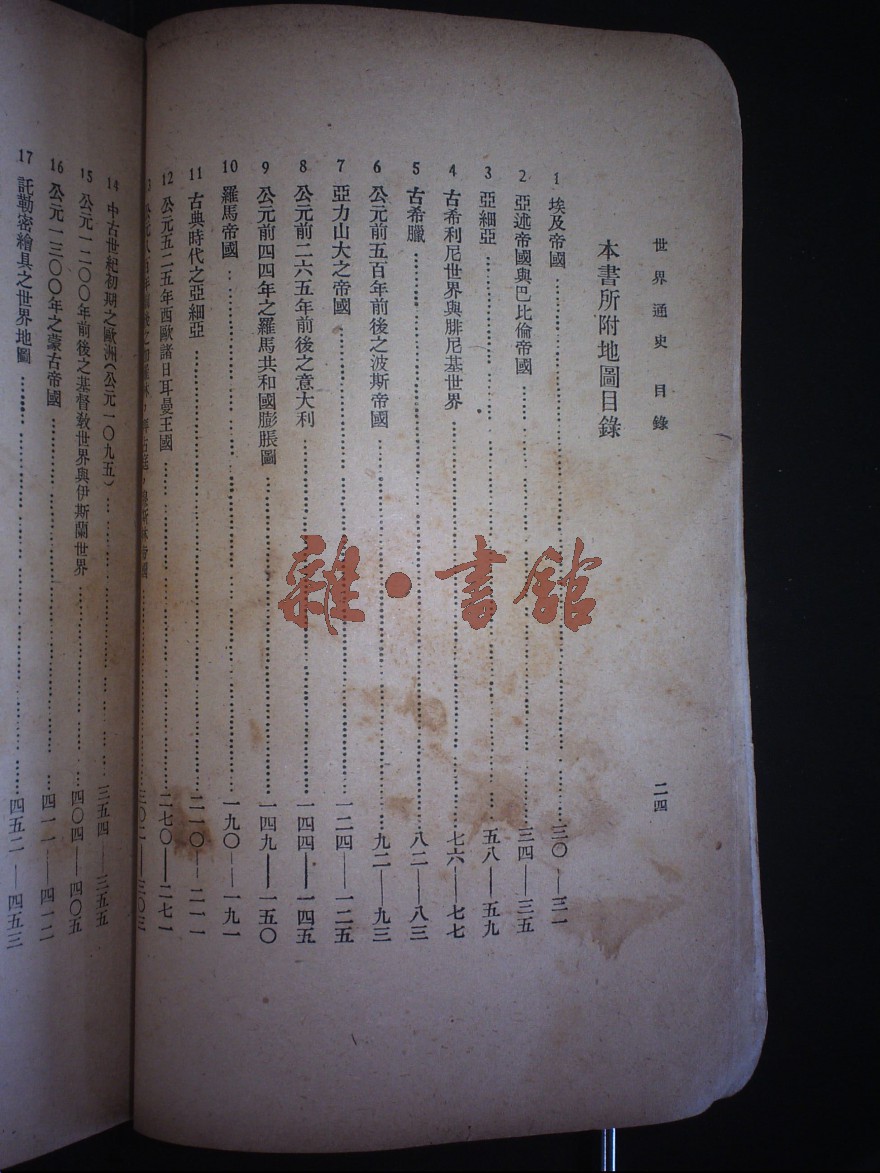 世界通史 目錄
二四
本書所附地圖目錄
1 埃及帝國……三〇——三一
2 亞述帝國與巴比倫帝國……三四——三五
3 亞細亞……五八——五九
4 古希利尼世界與腓尼基世界……七六——七七
5 古希臘……八二——八三
6 公元前五百年前後之波斯帝國……九二——九三
7 亞力山大之帝國……一二四——一二五
8 公元前二六五年前後之意大利……一四四——一四五
9 公元前四四年之羅馬共和國膨脹圖……一四九——一五〇
10 羅馬帝國……一九〇——一九一
11 古典時代之亞細亞……二一〇——二一一
12 公元五二五年西歐諸日耳曼王國……二七〇——二七一
帝國……三〇二——三〇三
14 中古世紀初期之歐洲(公元一〇九五)……三五四——三五五
15 公元一二〇〇年前後之基督教世界與伊斯蘭世界……四〇四——四〇五
16 公元一三〇〇年之蒙古帝國……四一一——四一二
17 託勒密繪具之世界地圖……四五二——四五三
雜·書館